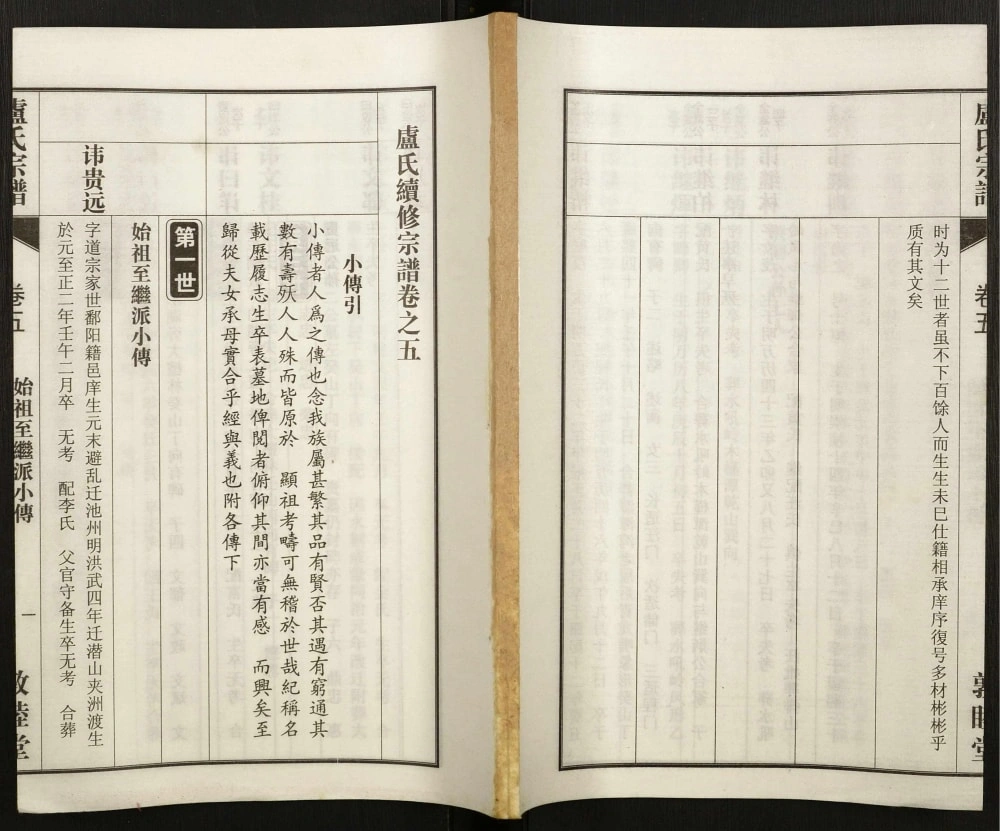 盧氏宗譜
卷五
敦睦堂
时为十二世者虽不下百馀人而生生未巳仕籍相承庠序復号多材彬彬乎
质有其文矣
盧氏續修宗譜卷之五
小傳引
小傳者人爲之傳也念我族屬甚繁其品有賢否其遇有窮通其
數有壽殀人人殊而皆原於 顯祖考疇可無稽於世哉紀稱名
載歷履志生卒表墓地俾閱者俯仰其間亦當有感 而興矣至
歸從夫女承母實合乎經與義也附各傳下
第一世
始祖至繼派小傳
讳贵远
字道宗家世鄱阳籍邑庠生元末避乱迁池州明洪武四年迁潜山夹洲渡生
於元至正二年壬午二月卒 无考 配李氏 父官守备生卒无考 合葬
盧氏宗譜
卷五
始祖至繼派小傳
一
敦睦堂